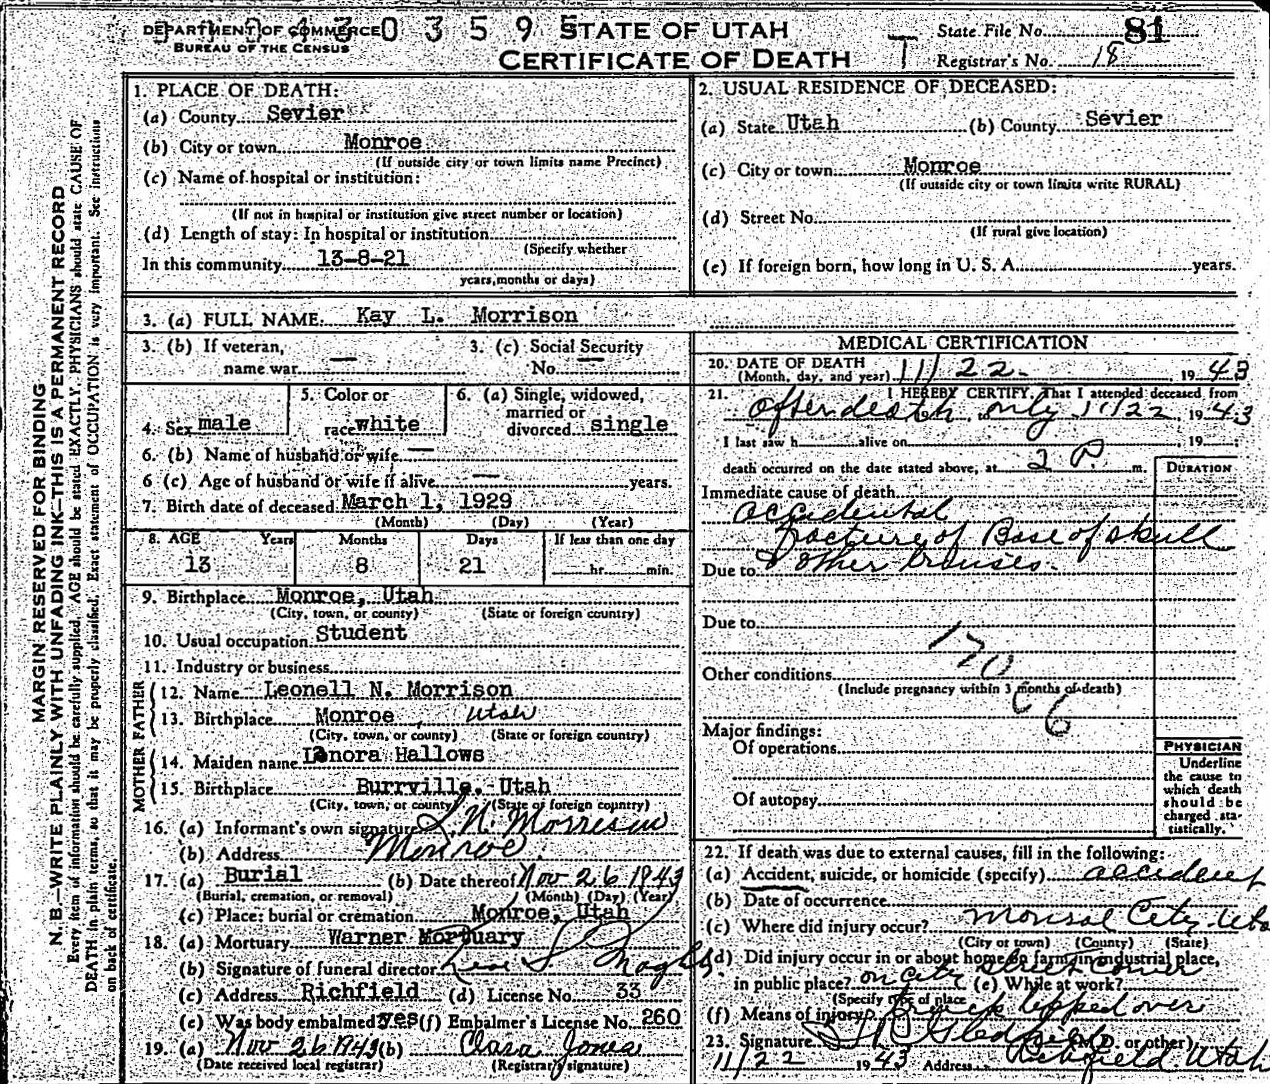 DEPARTMENT OF COMMERCE 0 3 5 9 STATE OF UTAH State File No. 81
BUREAU OF THE CENSUS CERTIFICATE OF DEATH Registrar's No. 18
MARGIN RESERVED FOR BINDING
N. B.—WRITE PLAINLY WITH UNFADING INK—THIS IS A PERMANENT RECORD
Every item of information should be carefully supplied. AGE should be stated EXACTLY. PHYSICIANS should state CAUSE OF
DEATH in plain terms, so that it may be properly classified. Exact statement of OCCUPATION is very important. See instructions
on back of certificate.
1. PLACE OF DEATH:
(a) County Sevier
(b) City or town Monroe
(If outside city or town limits name Precinct)
(c) Name of hospital or institution:
(If not in hospital or institution give street number or location)
(d) Length of stay: In hospital or institution
(Specify whether
In this community 13-8-21
years, months or days)
2. USUAL RESIDENCE OF DECEASED:
(a) State Utah (b) County Sevier
(c) City or town Monroe
(If outside city or town limits write RURAL)
(d) Street No.
(If rural give location)
(e) If foreign born, how long in U. S. A. years.
3. (a) FULL NAME Kay L. Morrison
3. (b) If veteran, 3. (c) Social Security
name war — No. —
4. Sex male 5. Color or race white 6. (a) Single, widowed, married or divorced single
6. (b) Name of husband or wife —
6 (c) Age of husband or wife if alive — years.
7. Birth date of deceased March 1, 1929
(Month) (Day) (Year)
8. AGE Years Months Days If less than one day
13 8 21 hr. min.
9. Birthplace Monroe, Utah
(City, town, or county) (State or foreign country)
10. Usual occupation Student
11. Industry or business
FATHER
12. Name Leonell N. Morrison
13. Birthplace Monroe, Utah
(City, town, or county) (State or foreign country)
MOTHER
14. Maiden name Lenora Hallows
15. Birthplace Burrville, Utah
(City, town, or county) (State or foreign country)
16. (a) Informant's own signature L. N. Morrison
(b) Address Monroe
17. (a) Burial (b) Date thereof Nov 26 1943
(Burial, cremation, or removal) (Month) (Day) (Year)
(c) Place: burial or cremation Monroe, Utah
18. (a) Mortuary Warner Mortuary
(b) Signature of funeral director
(c) Address Richfield (d) License No. 33
(e) Was body embalmed? yes (f) Embalmer's License No. 260
19. (a) Nov 26 1943 (b) Clara Jones
(Date received local registrar) (Registrar's signature)
MEDICAL CERTIFICATION
20. DATE OF DEATH
(Month, day, and year) 11/22 , 1943
21. I HEREBY CERTIFY, That I attended deceased from
after death only 11/22, 1943
I last saw h alive on , 19 ;
death occurred on the date stated above, at 2 P. m.
DURATION
Immediate cause of death
accidental
fracture of Base of skull
Due to & other bruises.
Due to
170
Other conditions
(Include pregnancy within 3 months of death)
6 6
Major findings:
Of operations
Of autopsy
PHYSICIAN
Underline
the cause to
which death
should be
charged sta-
tistically.
22. If death was due to external causes, fill in the following:
(a) Accident, suicide, or homicide (specify) accident
(b) Date of occurrence
(c) Where did injury occur? City
(City or town) (County) (State)
(d) Did injury occur in or about home, on farm, in industrial place,
in public place? on City street corner (e) While at work?
(Specify type of place)
(f) Means of injury truck tipped over
23. Signature (M.D. or other)
11/22 1943 Address Richfield Utah